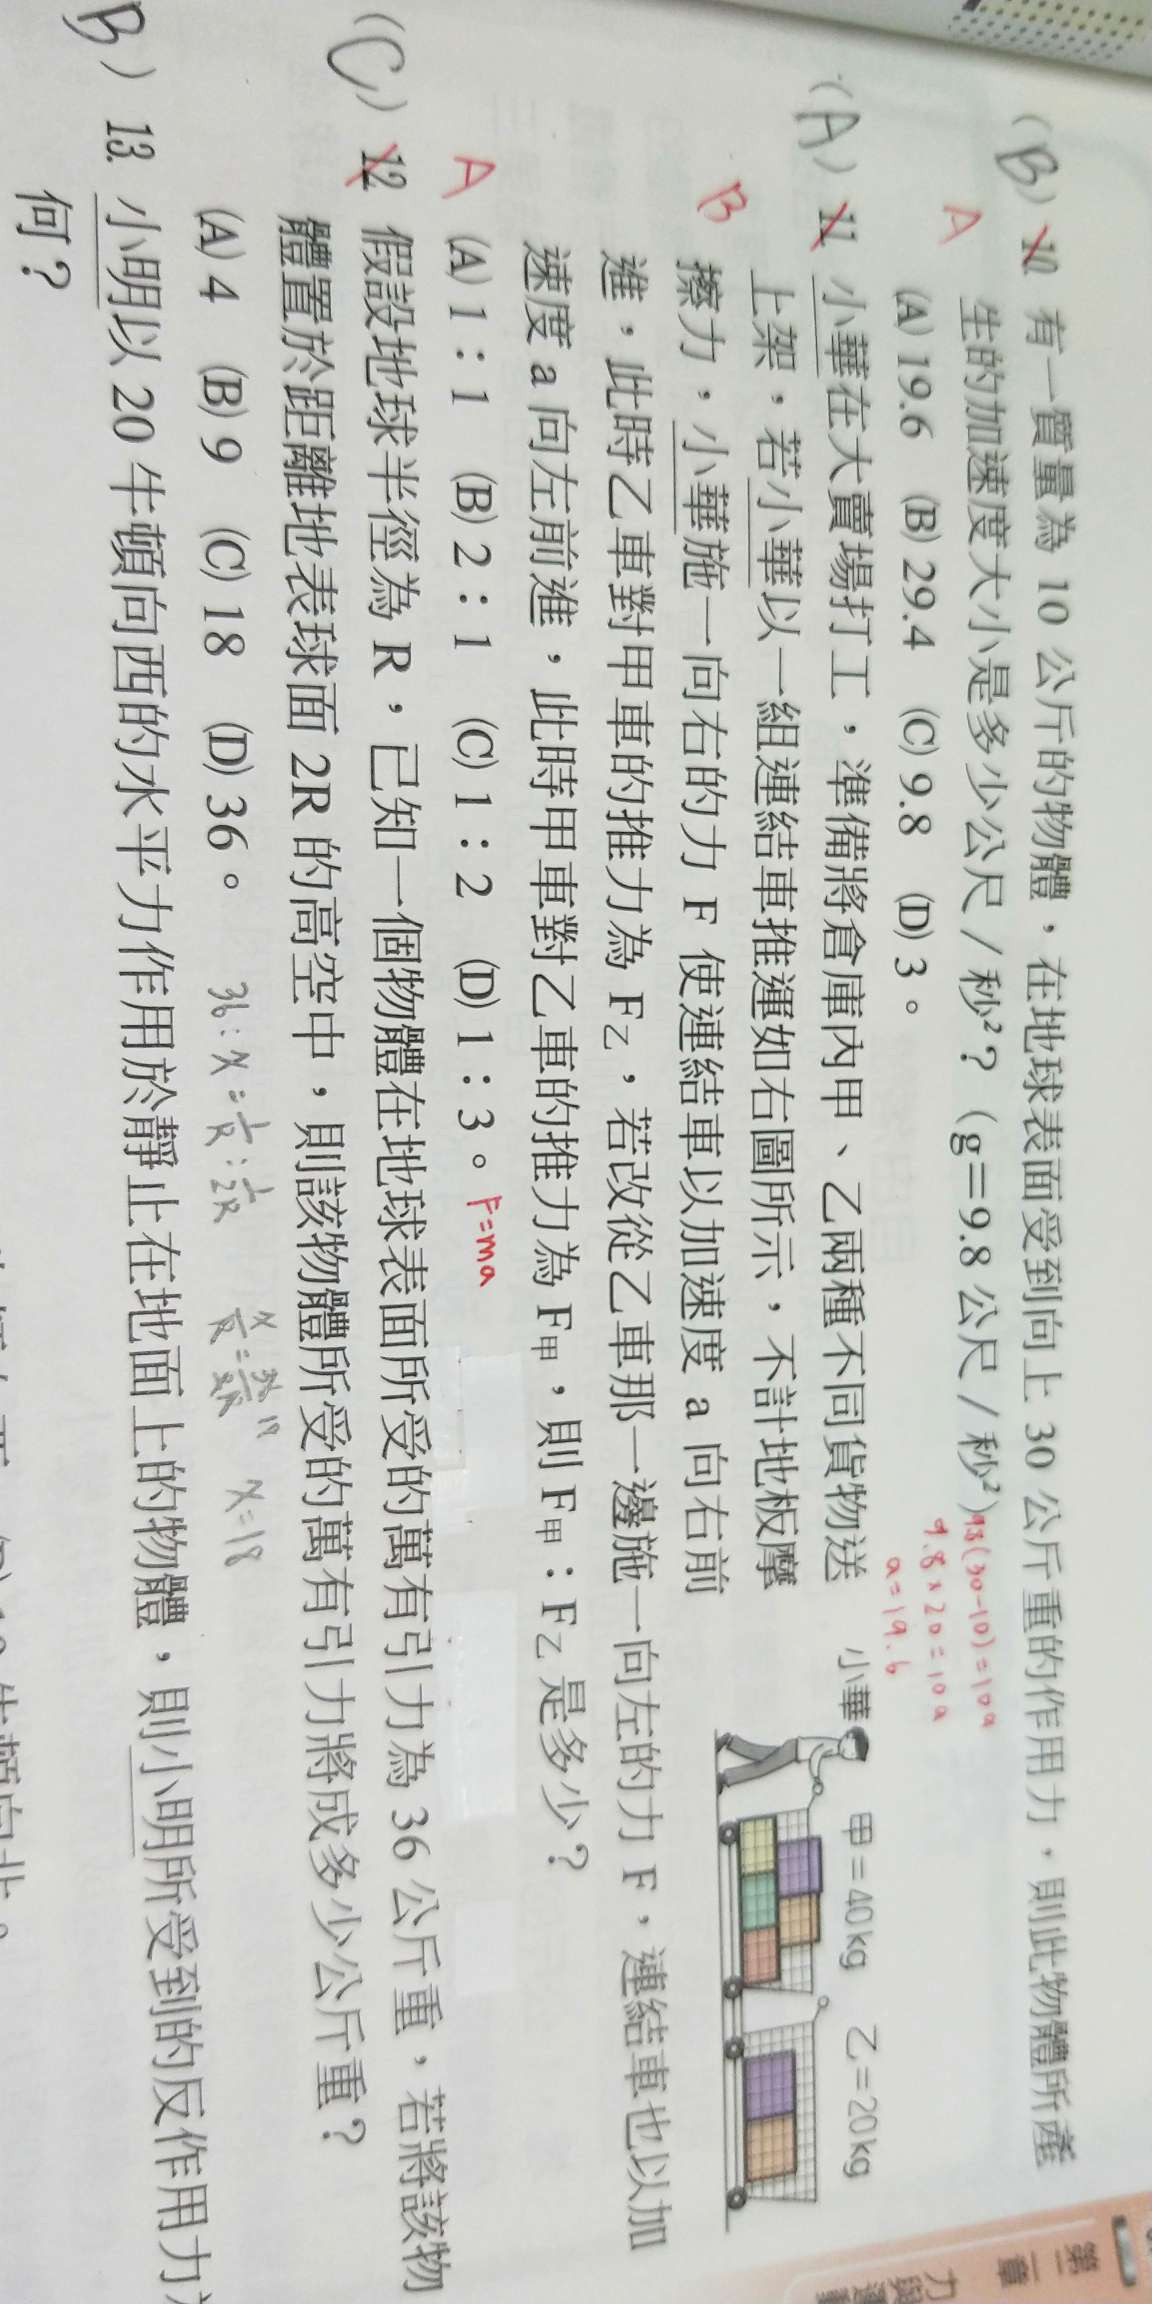 (B) 10. 有一質量為 10 公斤的物體，在地球表面受到向上 30 公斤重的作用力，則此物體所產
A 生的加速度大小是多少公尺／秒²？（g＝9.8 公尺／秒²） 9.8(30-10)=10a
(A) 19.6 (B) 29.4 (C) 9.8 (D) 3。
9.8×20=10a
a=19.6
(A) 11. 小華在大賣場打工，準備將倉庫內甲、乙兩種不同貨物送
上架，若小華以一組連結車推運如右圖所示，不計地板摩
B 擦力，小華施一向右的力 F 使連結車以加速度 a 向右前
小華 甲=40kg 乙=20kg
進，此時乙車對甲車的推力為 F乙，若改從乙車那一邊施一向左的力 F，連結車也以加
速度 a 向左前進，此時甲車對乙車的推力為 F甲，則 F甲：F乙 是多少？
A (A) 1：1 (B) 2：1 (C) 1：2 (D) 1：3。 F=ma
(C) 12. 假設地球半徑為 R，已知一個物體在地球表面所受的萬有引力為 36 公斤重，若將該物
體置於距離地表球面 2R 的高空中，則該物體所受的萬有引力將成多少公斤重？
(A) 4 (B) 9 (C) 18 (D) 36。
36:x=1/R:1/2R x/R=36/2R 18 x=18
B) 13. 小明以 20 牛頓向西的水平力作用於靜止在地面上的物體，則小明所受到的反作用力
何？
第二章